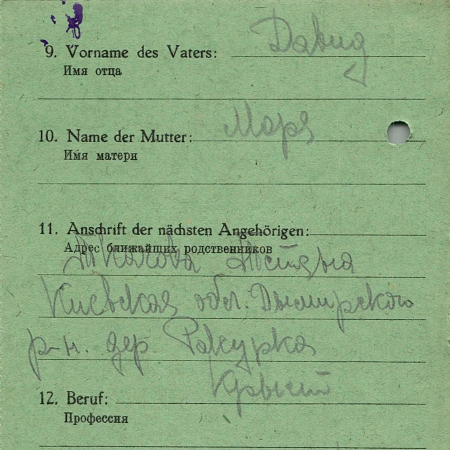 9. Vorname des Vaters: Давид
Имя отца
10. Name der Mutter: Мар
Имя матери
11. Anschrift der nächsten Angehörigen:
Адрес ближайших родственников
Киевская обл. Дымирского
р-н. дер
12. Beruf:
Профессия